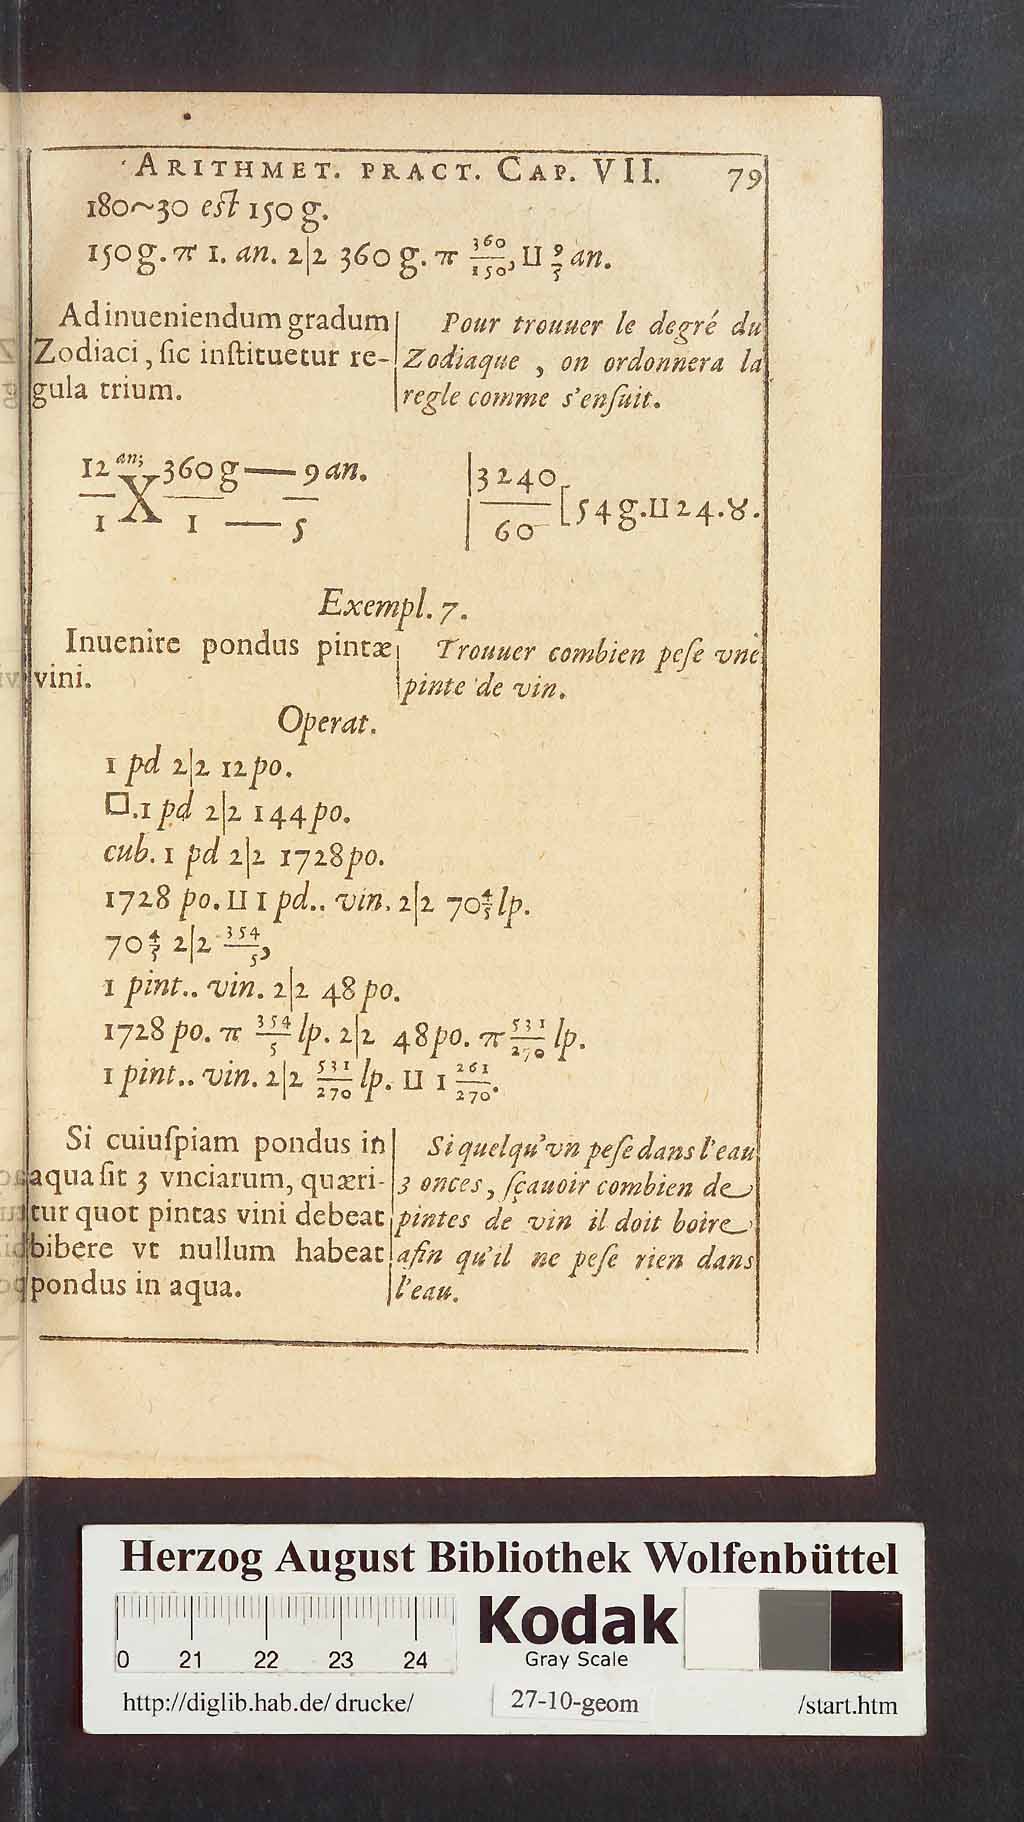 ARITHMET. PRACT. CAP. VII. 79
180~30 est 150 g.
150 g. π 1. an. 2|2 360 g. π 360/150, II 9/5 an.
Ad inueniendum gradum
Zodiaci, sic instituetur re-
gula trium.
Pour trouuer le degré du
Zodiaque , on ordonnera la
regle comme s'ensuit.
12 an; 360 g — 9 an.
X
1 1 — 5
3240
60 [54 g. II 24. ♉.
Exempl. 7.
Inuenire pondus pintæ
vini.
Trouuer combien pese vne
pinte de vin.
Operat.
1 pd 2|2 12 po.
□.1 pd 2|2 144 po.
cub. 1 pd 2|2 1728 po.
1728 po. II 1 pd.. vin. 2|2 70 4/5 lp.
70 4/5 2|2 354/5,
1 pint.. vin. 2|2 48 po.
1728 po. π 354/5 lp. 2|2 48 po. π 531/270 lp.
1 pint.. vin. 2|2 531/270 lp. II 1 261/270.
Si cuiuspiam pondus in
aqua sit 3 vnciarum, quæri-
tur quot pintas vini debeat
bibere vt nullum habeat
pondus in aqua.
Si quelqu'vn pese dans l'eau
3 onces, sçauoir combien de
pintes de vin il doit boire
afin qu'il ne pese rien dans
l'eau.
Herzog August Bibliothek Wolfenbüttel
0 21 22 23 24
Kodak
Gray Scale
http://diglib.hab.de/drucke/ 27-10-geom /start.htm